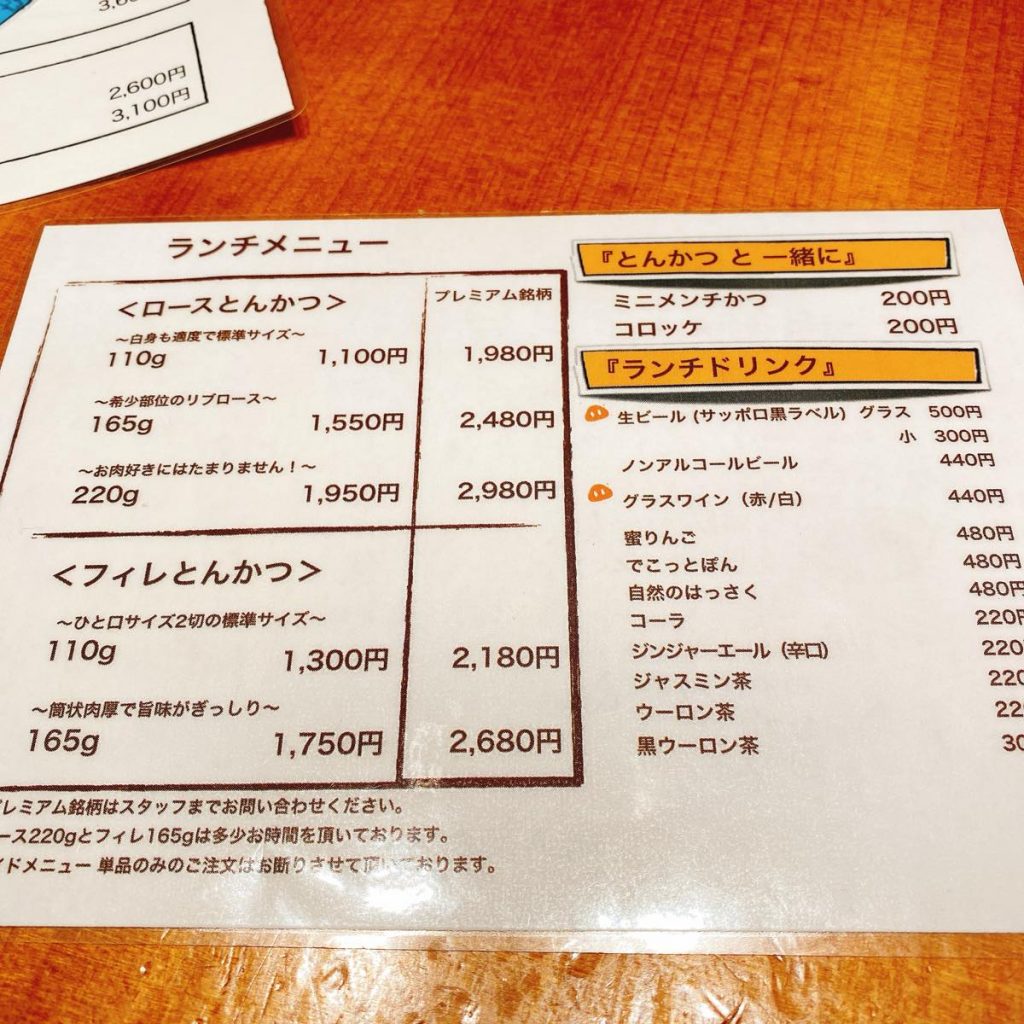 2,600円
3,100円
ランチメニュー
＜ロースとんかつ＞ プレミアム銘柄
〜白身も適度で標準サイズ〜
110g 1,100円 1,980円
〜希少部位のリブロース〜
165g 1,550円 2,480円
〜お肉好きにはたまりません！〜
220g 1,950円 2,980円
＜フィレとんかつ＞
〜ひと口サイズ2切の標準サイズ〜
110g 1,300円 2,180円
〜筒状肉厚で旨味がぎっしり〜
165g 1,750円 2,680円
レミアム銘柄はスタッフまでお問い合わせください。
ース220gとフィレ165gは多少お時間を頂いております。
イドメニュー 単品のみのご注文はお断りさせて頂いております。
『とんかつ と 一緒に』
ミニメンチかつ 200円
コロッケ 200円
『ランチドリンク』
生ビール (サッポロ黒ラベル) グラス 500円
小 300円
ノンアルコールビール 440円
グラスワイン（赤/白） 440円
蜜りんご 480円
でこっとぽん 480円
自然のはっさく 480円
コーラ 220円
ジンジャーエール（辛口） 220
ジャスミン茶 220
ウーロン茶 22
黒ウーロン茶 30